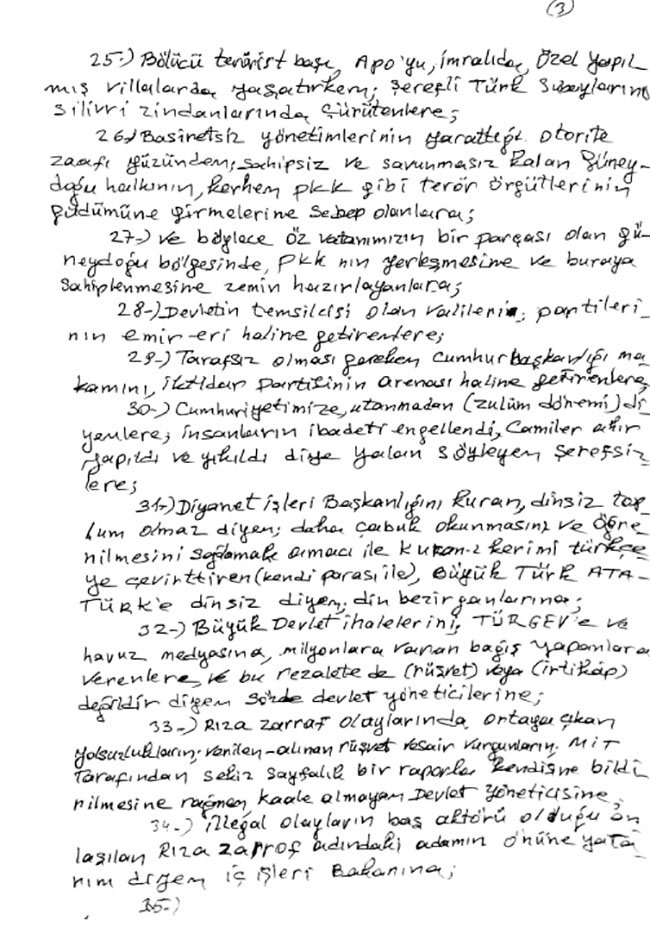 (3)
25-) Bölücü terörist başı Apo'yu, İmralıda, Özel yapıl
mış villalarda yaşatırken; şerefli Türk Subaylarını
silivri zindanlarında çürütenlere;
26-) Basiretsiz yönetimlerinin yarattığı otorite
zaafı yüzünden; sahipsiz ve savunmasız kalan Güney-
doğu halkının, kerhen pkk gibi terör örgütlerinin
güdümüne girmelerine sebep olanlara;
27-) ve böylece öz vatanımızın bir parçası olan gü-
neydoğu bölgesinde, pkk nın yerleşmesine ve buraya
sahiplenmesine zemin hazırlayanlara;
28-) Devletin temsilcisi olan valilerin; partileri-
nin emir eri haline getirenlere;
29-) Tarafsız olması gereken cumhurbaşkanlığı ma
kamını, iktidar partisinin arenası haline getirenlere,
30-) Cumhuriyetimize, utanmadan (zulüm dönemi) di
yenlere; insanların ibadeti engellendi, Camiler ahır
yapıldı ve yıkıldı diye yalan söyleyen şerefsiz
lere;
31-) Diyanet işleri Başkanlığını kuran, dinsiz top
lum olmaz diyen; daha çabuk okunmasını ve öğre
nilmesini sağlamak amacı ile kuran-ı kerimi türkçe
ye çevirttiren (kendi parası ile), Büyük Türk ATA-
TÜRK'e dinsiz diyen; din bezirganlarına;
32-) Büyük Devlet ihalelerini; TÜRGEV'e ve
havuz medyasına, milyonlara varan bağış yapanlara
verenlere, ve bu rezalete de (rüşvet) veya (irtikâp)
değildir diyen sözde devlet yöneticilerine;
33-) Rıza zarraf olaylarında ortaya çıkan
yolsuzlukların; verilen-alınan rüşvet vesair vurgunların; MİT
tarafından sekiz sayfalık bir raporla kendisine bildi
rilmesine rağmen, kaale almayan Devlet yöneticisine;
34-) illegal olayların baş aktörü olduğu an
laşılan Rıza zarrof adındaki adamın önüne yata
rım diyen iç işleri Bakanına;
35-)